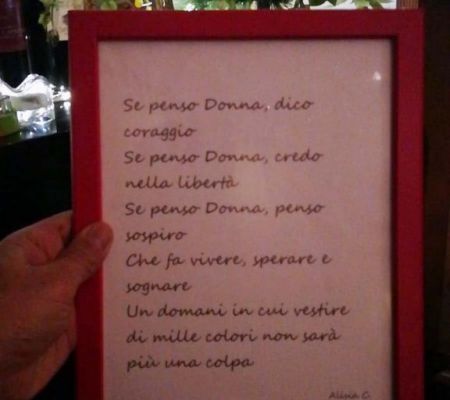 Se penso Donna, dico
coraggio
Se penso Donna, credo
nella libertà
Se penso Donna, penso
sospiro
Che fa vivere, sperare e
sognare
Un domani in cui vestire
di mille colori non sarà
più una colpa